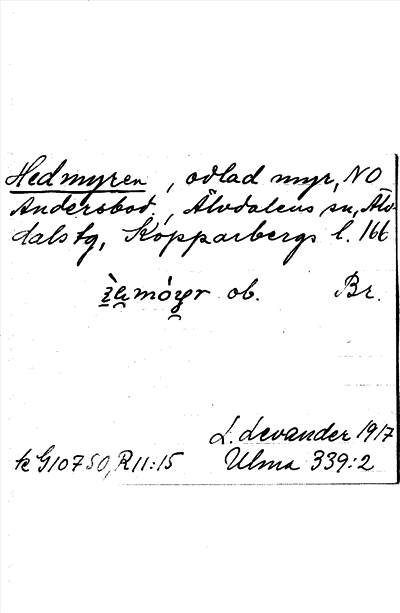 Hedmyren, odlad myr, NO
Andersbod., Älvdalens sn, Älv-
dals tg, Kopparbergs l. 166
ob. Br.
L. Levander 1917
k G10750, R11:15 Ulma 339:2